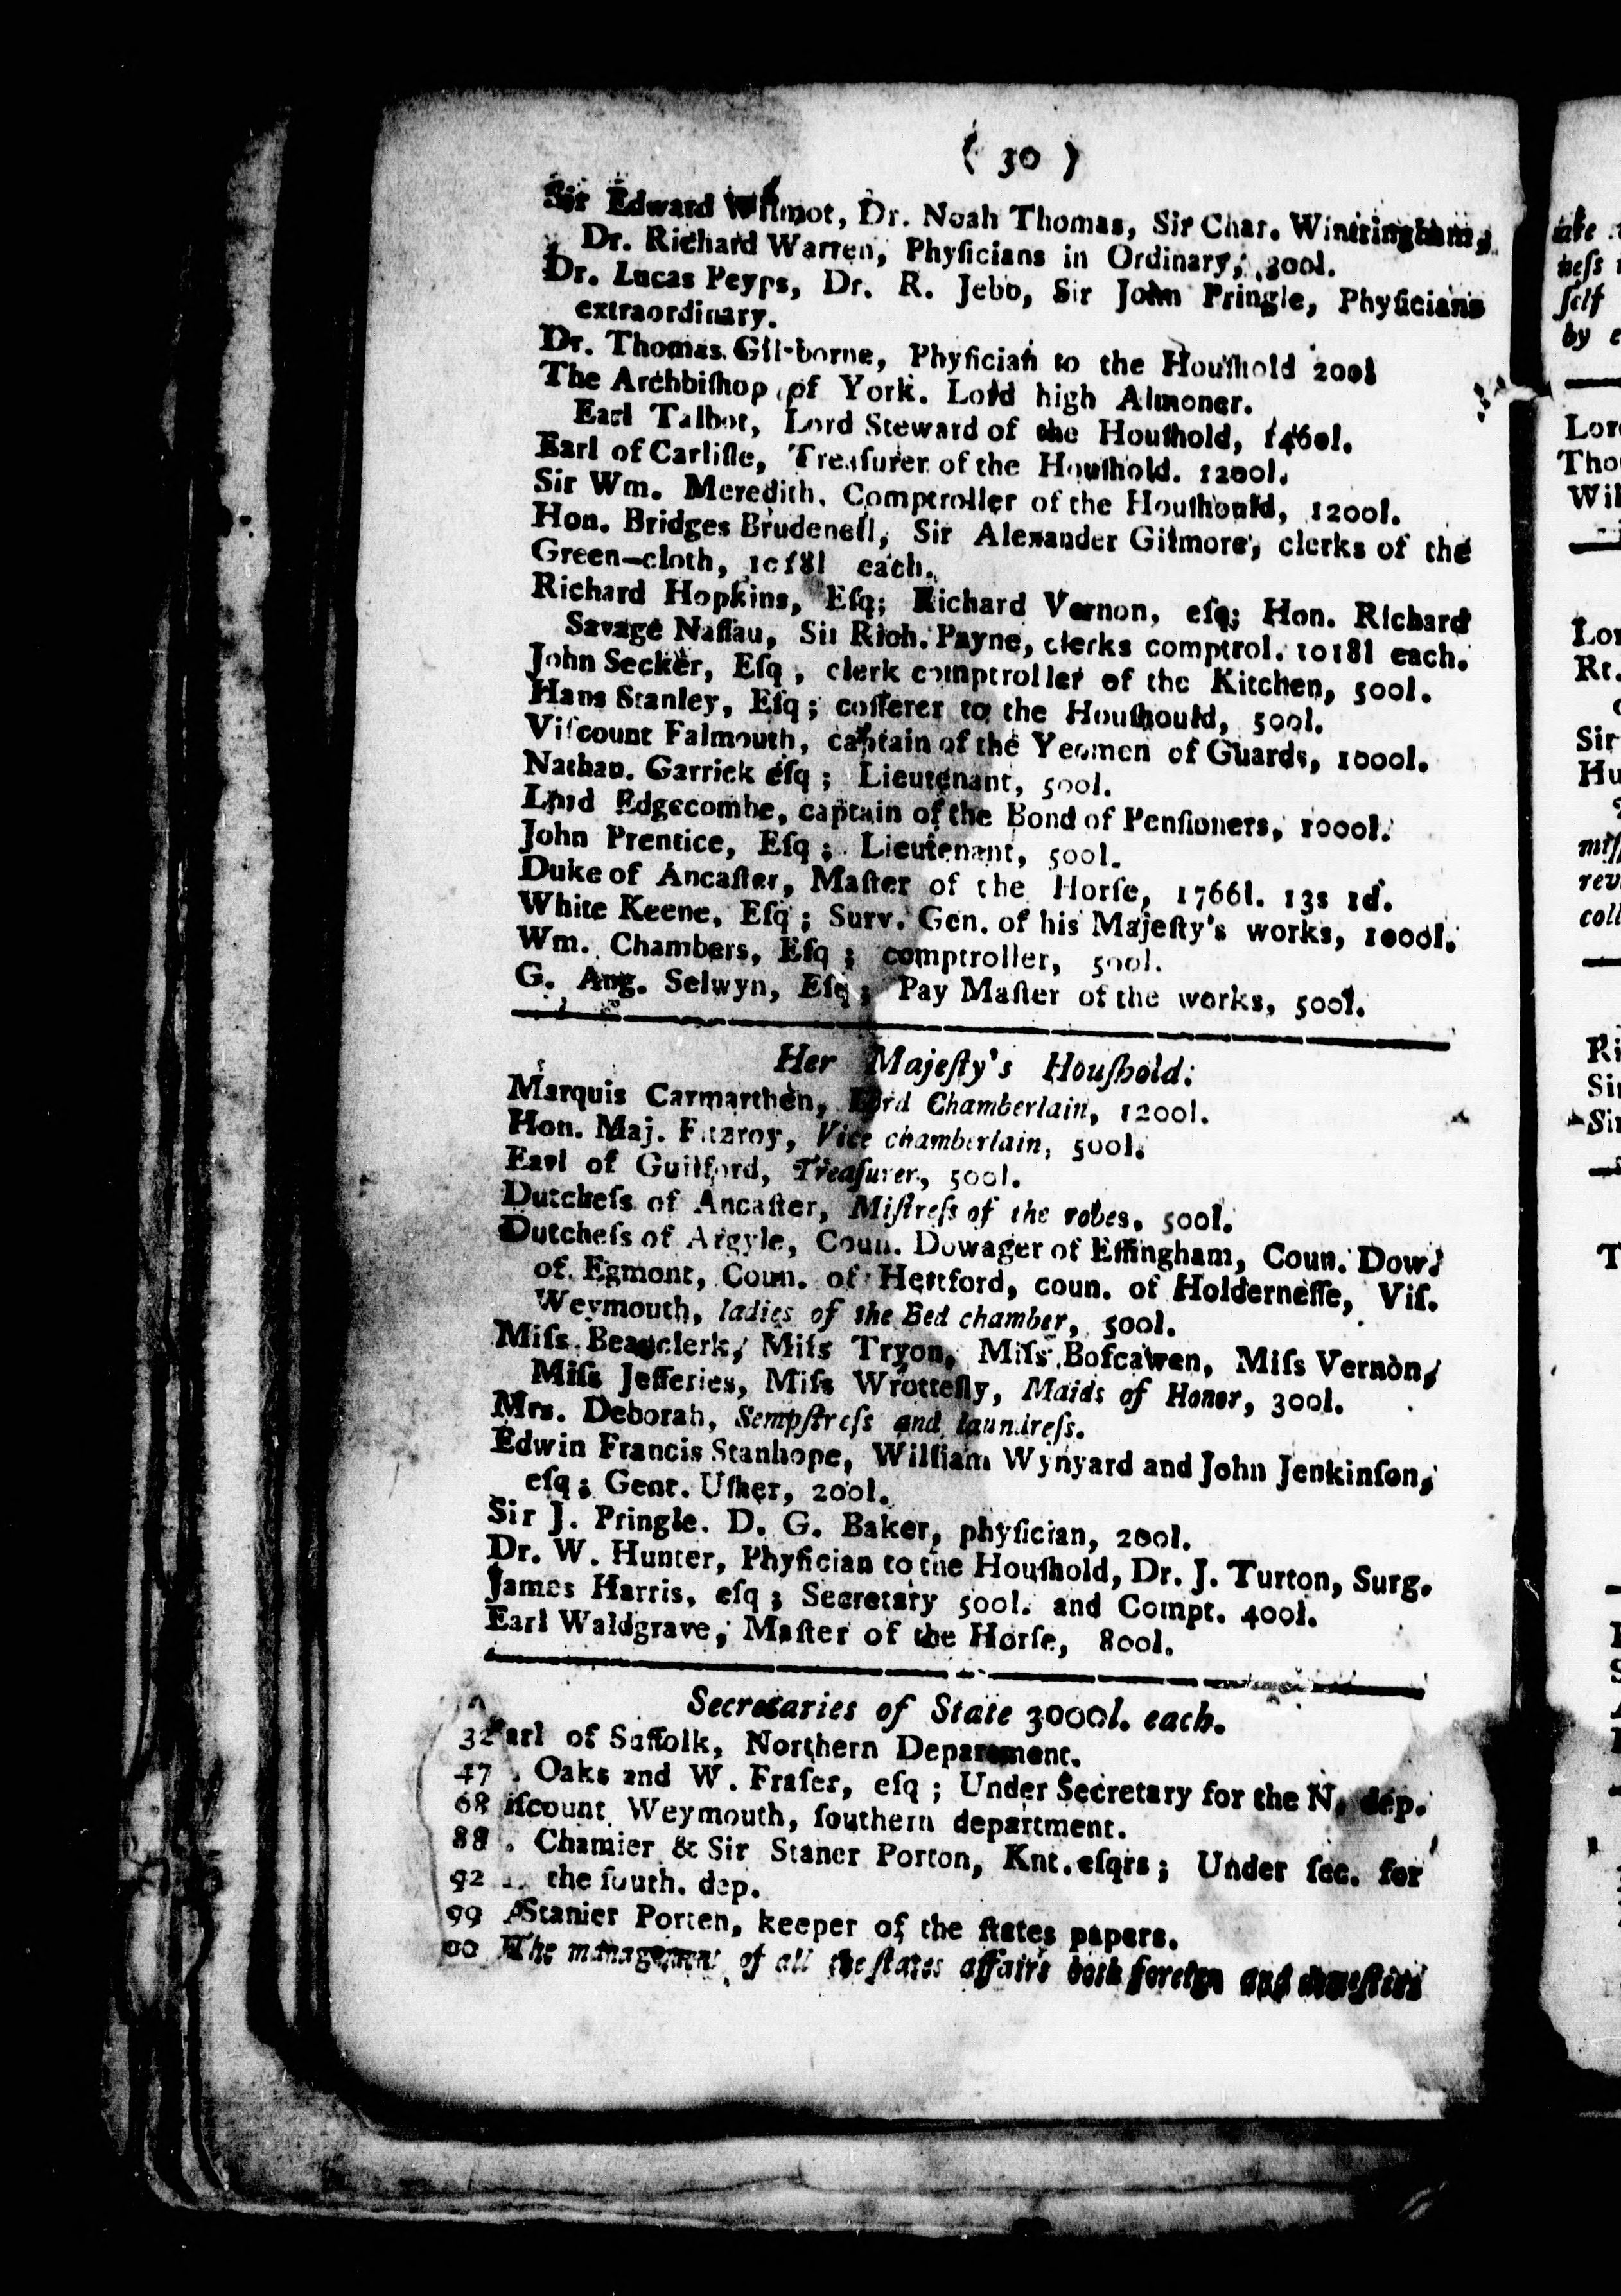 ( 30 )
Sir Edward Wilmot, Dr. Noah Thomas, Sir Char. Wintringham,
Dr. Richard Warren, Phyſicians in Ordinary, 300l.
Dr. Lucas Peyps, Dr. R. Jebb, Sir John Pringle, Phyſicians
extraordinary.
Dr. Thomas Giſborne, Phyſician to the Houſhold 200l
The Archbiſhop of York. Lord high Almoner.
Earl Talbot, Lord Steward of the Houſhold, 1460l.
Earl of Carliſle, Treaſurer of the Houſhold. 1200l.
Sir Wm. Meredith, Comptroller of the Houſhould, 1200l.
Hon. Bridges Brudenell, Sir Alexander Gilmore, clerks of the
Green-cloth, 1018l each.
Richard Hopkins, Eſq; Richard Vernon, eſq; Hon. Richard
Savage Naſſau, Sir Rich. Payne, clerks comptrol. 1018l each.
John Secker, Eſq, clerk comptroller of the Kitchen, 500l.
Hans Stanley, Eſq; cofferer to the Houſhould, 500l.
Viſcount Falmouth, captain of the Yeomen of Guards, 1000l.
Nathan. Garrick eſq; Lieutenant, 500l.
Lord Edgecombe, captain of the Bond of Penſioners, 1000l.
John Prentice, Eſq; Lieutenant, 500l.
Duke of Ancaſter, Maſter of the Horſe, 1766l. 13s 1d.
White Keene, Eſq; Surv. Gen. of his Majeſty's works, 1000l.
Wm. Chambers, Eſq; comptroller, 500l.
G. Aug. Selwyn, Eſq; Pay Maſter of the works, 500l.
Her Majeſty's Houſhold:
Marquis Carmarthen, Lord Chamberlain, 1200l.
Hon. Maj. Fitzroy, Vice chamberlain, 500l.
Earl of Guilford, Treaſurer, 500l.
Dutcheſs of Ancaſter, Miſtreſs of the robes, 500l.
Dutcheſs of Argyle, Coun. Dowager of Effingham, Coun. Dow.
of Egmont, Coun. of Hertford, coun. of Holderneſſe, Viſ.
Weymouth, ladies of the Bed chamber, 500l.
Miſs Beauclerk, Miſs Tryon, Miſs Boſcawen, Miſs Vernon,
Miſs Jefferies, Miſs Wrotteſly, Maids of Honor, 300l.
Mrs. Deborah, Sempſtreſs and laundreſs.
Edwin Francis Stanhope, William Wynyard and John Jenkinſon,
eſq; Gent. Uſher, 200l.
Sir J. Pringle. D. G. Baker, phyſician, 200l.
Dr. W. Hunter, Phyſician to the Houſhold, Dr. J. Turton, Surg.
James Harris, eſq; Secretary 500l. and Compt. 400l.
Earl Waldgrave, Maſter of the Horſe, 800l.
Secretaries of State 3000l. each.
32 arl of Suffolk, Northern Department.
47 . Oaks and W. Fraſer, eſq; Under Secretary for the N. dep.
68 iſcount Weymouth, ſouthern department.
88 . Chamier & Sir Staner Porton, Knt. eſqrs; Under ſec. for
92 the ſouth. dep.
99 Stanier Porten, keeper of the ſtates papers.
00 The management of all the ſtates affairs both foreign and domeſtick